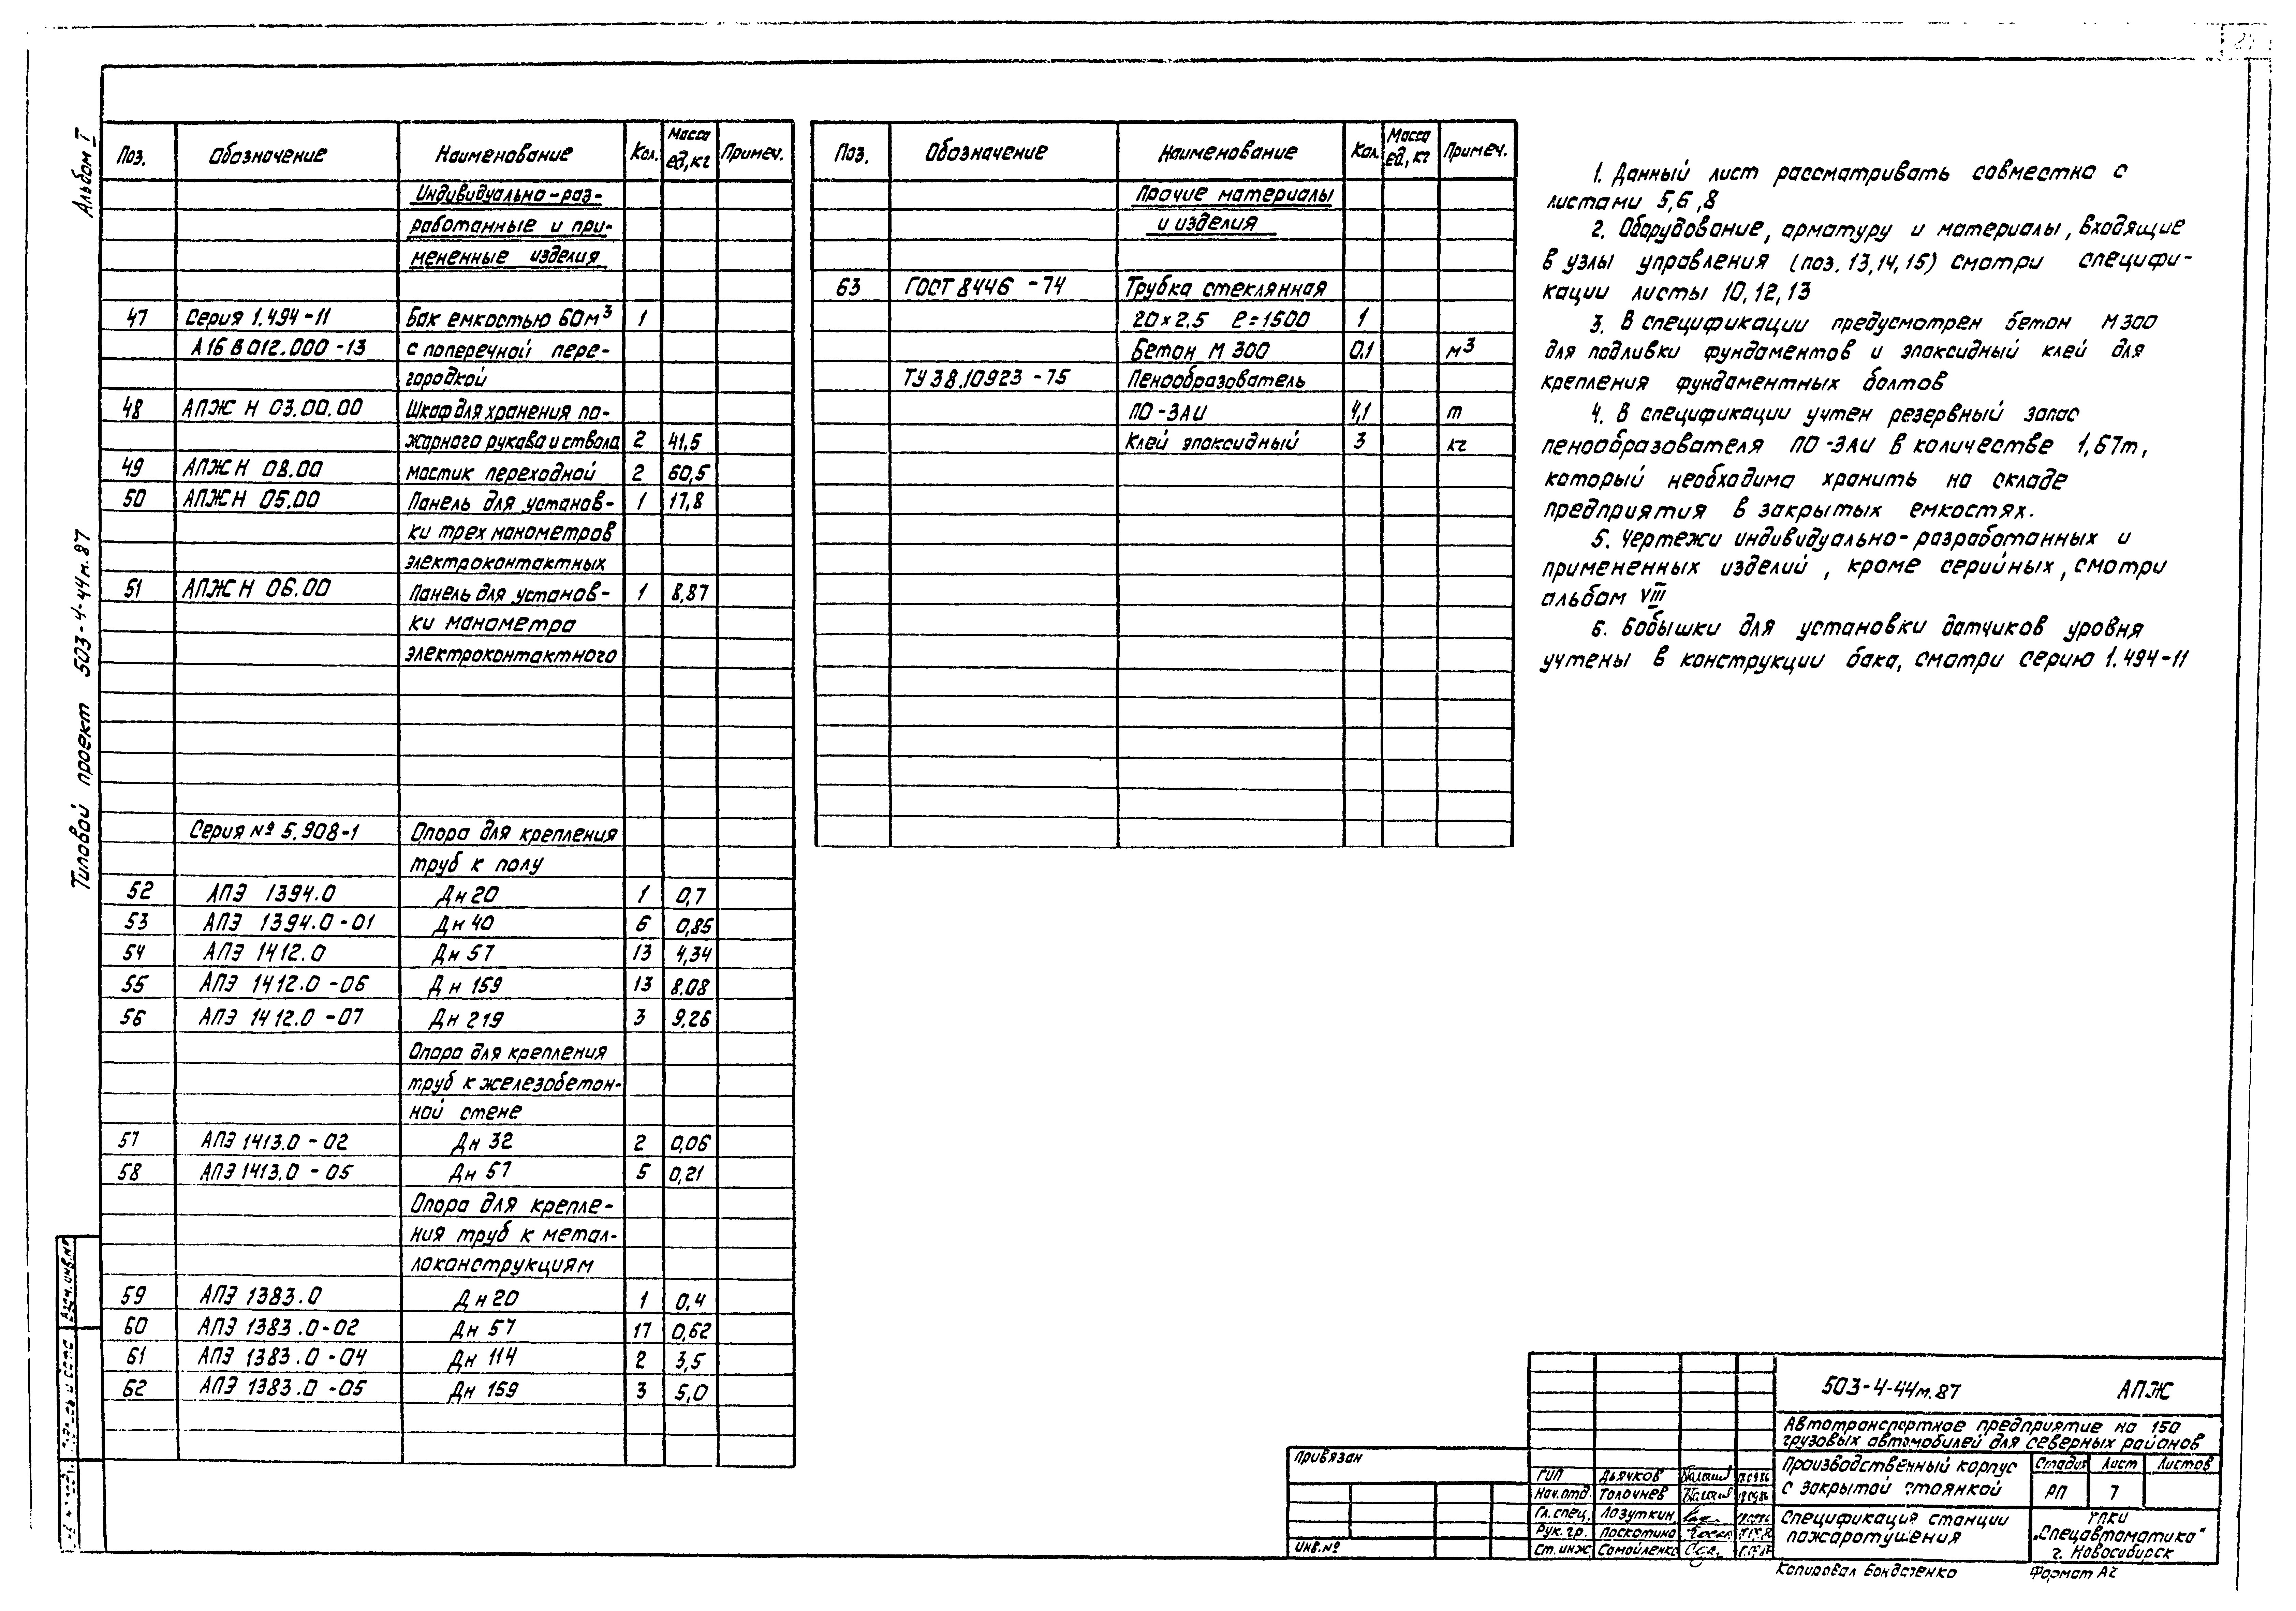 Альбом I
Типовой проект 503-4-44м.87
Поз. Обозначение Наименование Кол. Масса ед,кг Примеч.
Индивидуально-раз-
работанные и при-
мененные изделия
47 Серия 1.494-11 Бак емкостью 60м³ 1
А16 В 012.000-13 с поперечной пере-
городкой
48 АПЖ Н 03.00.00 Шкаф для хранения по-
жарного рукава и ствола 2 41,5
49 АПЖ Н 08.00 мостик переходной 2 60,5
50 АПЖ Н 05.00 Панель для установ- 1 17,8
ки трех манометров
электроконтактных
51 АПЖ Н 06.00 Панель для установ- 1 8,87
ки манометра
электроконтактного
Серия № 5.908-1 Опора для крепления
труб к полу
52 АПЭ 1394.0 Дн 20 1 0,7
53 АПЭ 1394.0-01 Дн 40 6 0,85
54 АПЭ 1412.0 Дн 57 13 4,34
55 АПЭ 1412.0-06 Дн 159 13 8.08
56 АПЭ 1412.0-07 Дн 219 3 9,26
Опора для крепления
труб к железобетон-
ной стене
57 АПЭ 1413.0-02 Дн 32 2 0,06
58 АПЭ 1413.0-05 Дн 57 5 0,21
Опора для крепле-
ния труб к метал-
локонструкциям
59 АПЭ 1383.0 Дн 20 1 0,4
60 АПЭ 1383.0-02 Дн 57 17 0,62
61 АПЭ 1383.0-04 Дн 114 2 3,5
62 АПЭ 1383.0-05 Дн 159 3 5,0
Поз. Обозначение Наименование Кол. Масса ед,кг Примеч.
Прочие материалы
и изделия
63 ГОСТ 8446-74 Трубка стеклянная
20×2.5 ℓ=1500 1
Бетон М 300 0.1 м³
ТУ 38.10923-75 Пенообразователь
ПО-3АИ 4,1 т
Клей эпоксидный 3 кг
1. Данный лист рассматривать совместно с
листами 5,6,8
2. Оборудование, арматуру и материалы, входящие
в узлы управления (поз. 13,14,15) смотри специфи-
кации листы 10,12,13
3. В спецификации предусмотрен бетон М 300
для подливки фундаментов и эпоксидный клей для
крепления фундаментных болтов
4. В спецификации учтен резервный запас
пенообразователя ПО-3АИ в количестве 1,67т,
который необходима хранить на складе
предприятия в закрытых емкостях.
5. Чертежи индивидуально-разработанных и
примененных изделий, кроме серийных, смотри
альбом VIII
6. Бобышки для установки датчиков уровня
учтены в конструкции бака, смотри серию 1.494-11
503-4-44м.87 АПЖ
Автотранспортное предприятие на 150
грузовых автомобилей для северных районов
Производственный корпус
с закрытой стоянкой
Стадия Лист Листов
РП 7
Спецификация станции
пожаротушения
"Спецавтоматика"
г. Новосибирск
Привязан
ИНВ.№
ГИП Дьячков
Нач.отд. Толочнев
Гл.спец. Лазуткин
Рук.гр. Паскотина
Ст.инж Самойленко
Взам.инв.№
Копировал Бондаренко Формат А2